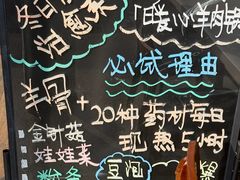 冬日
治愈系
「暖心羊肉锅
必试理由
羊骨+20种药材每日
现熬5小时
金针菇
娃娃菜
粉条
豆泡